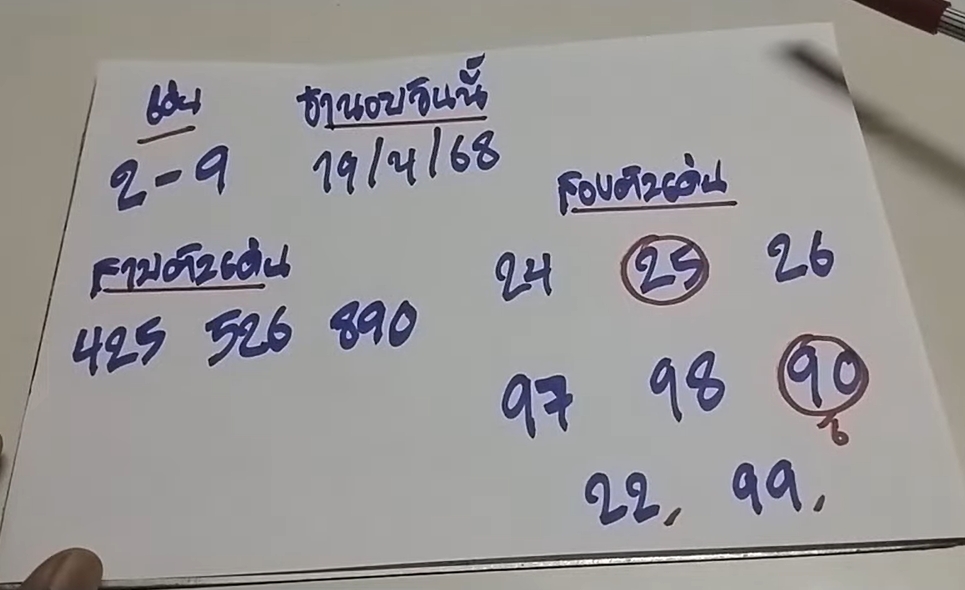 เด่น
ฮานอยวันนี้
2-9
19/4/68
สองตัวเด่น
สามตัวเด่น
24 25 26
425 526 890
97 98 90
6
22, 99,